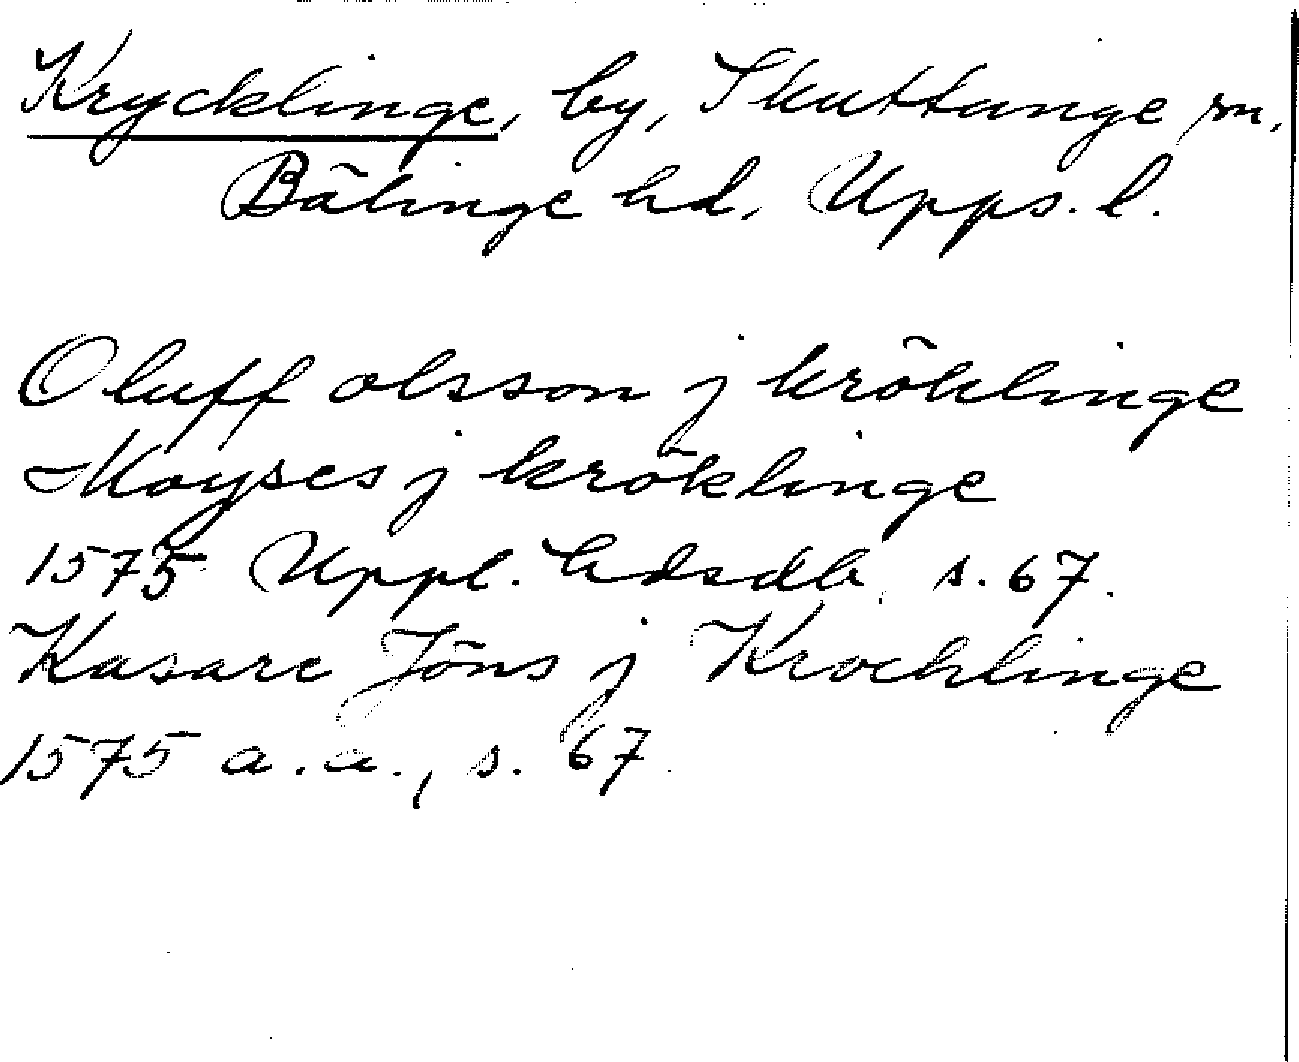 Krycklinge, by, Skuttunge sn,
Bälinge hd, Upps. l.
Oluff olsson j kröklinge
Moyses j kröklinge
1575 Uppl. hdsdb, s. 67.
Kasare Jöns j Krochlinge
1575 a.a., s. 67.